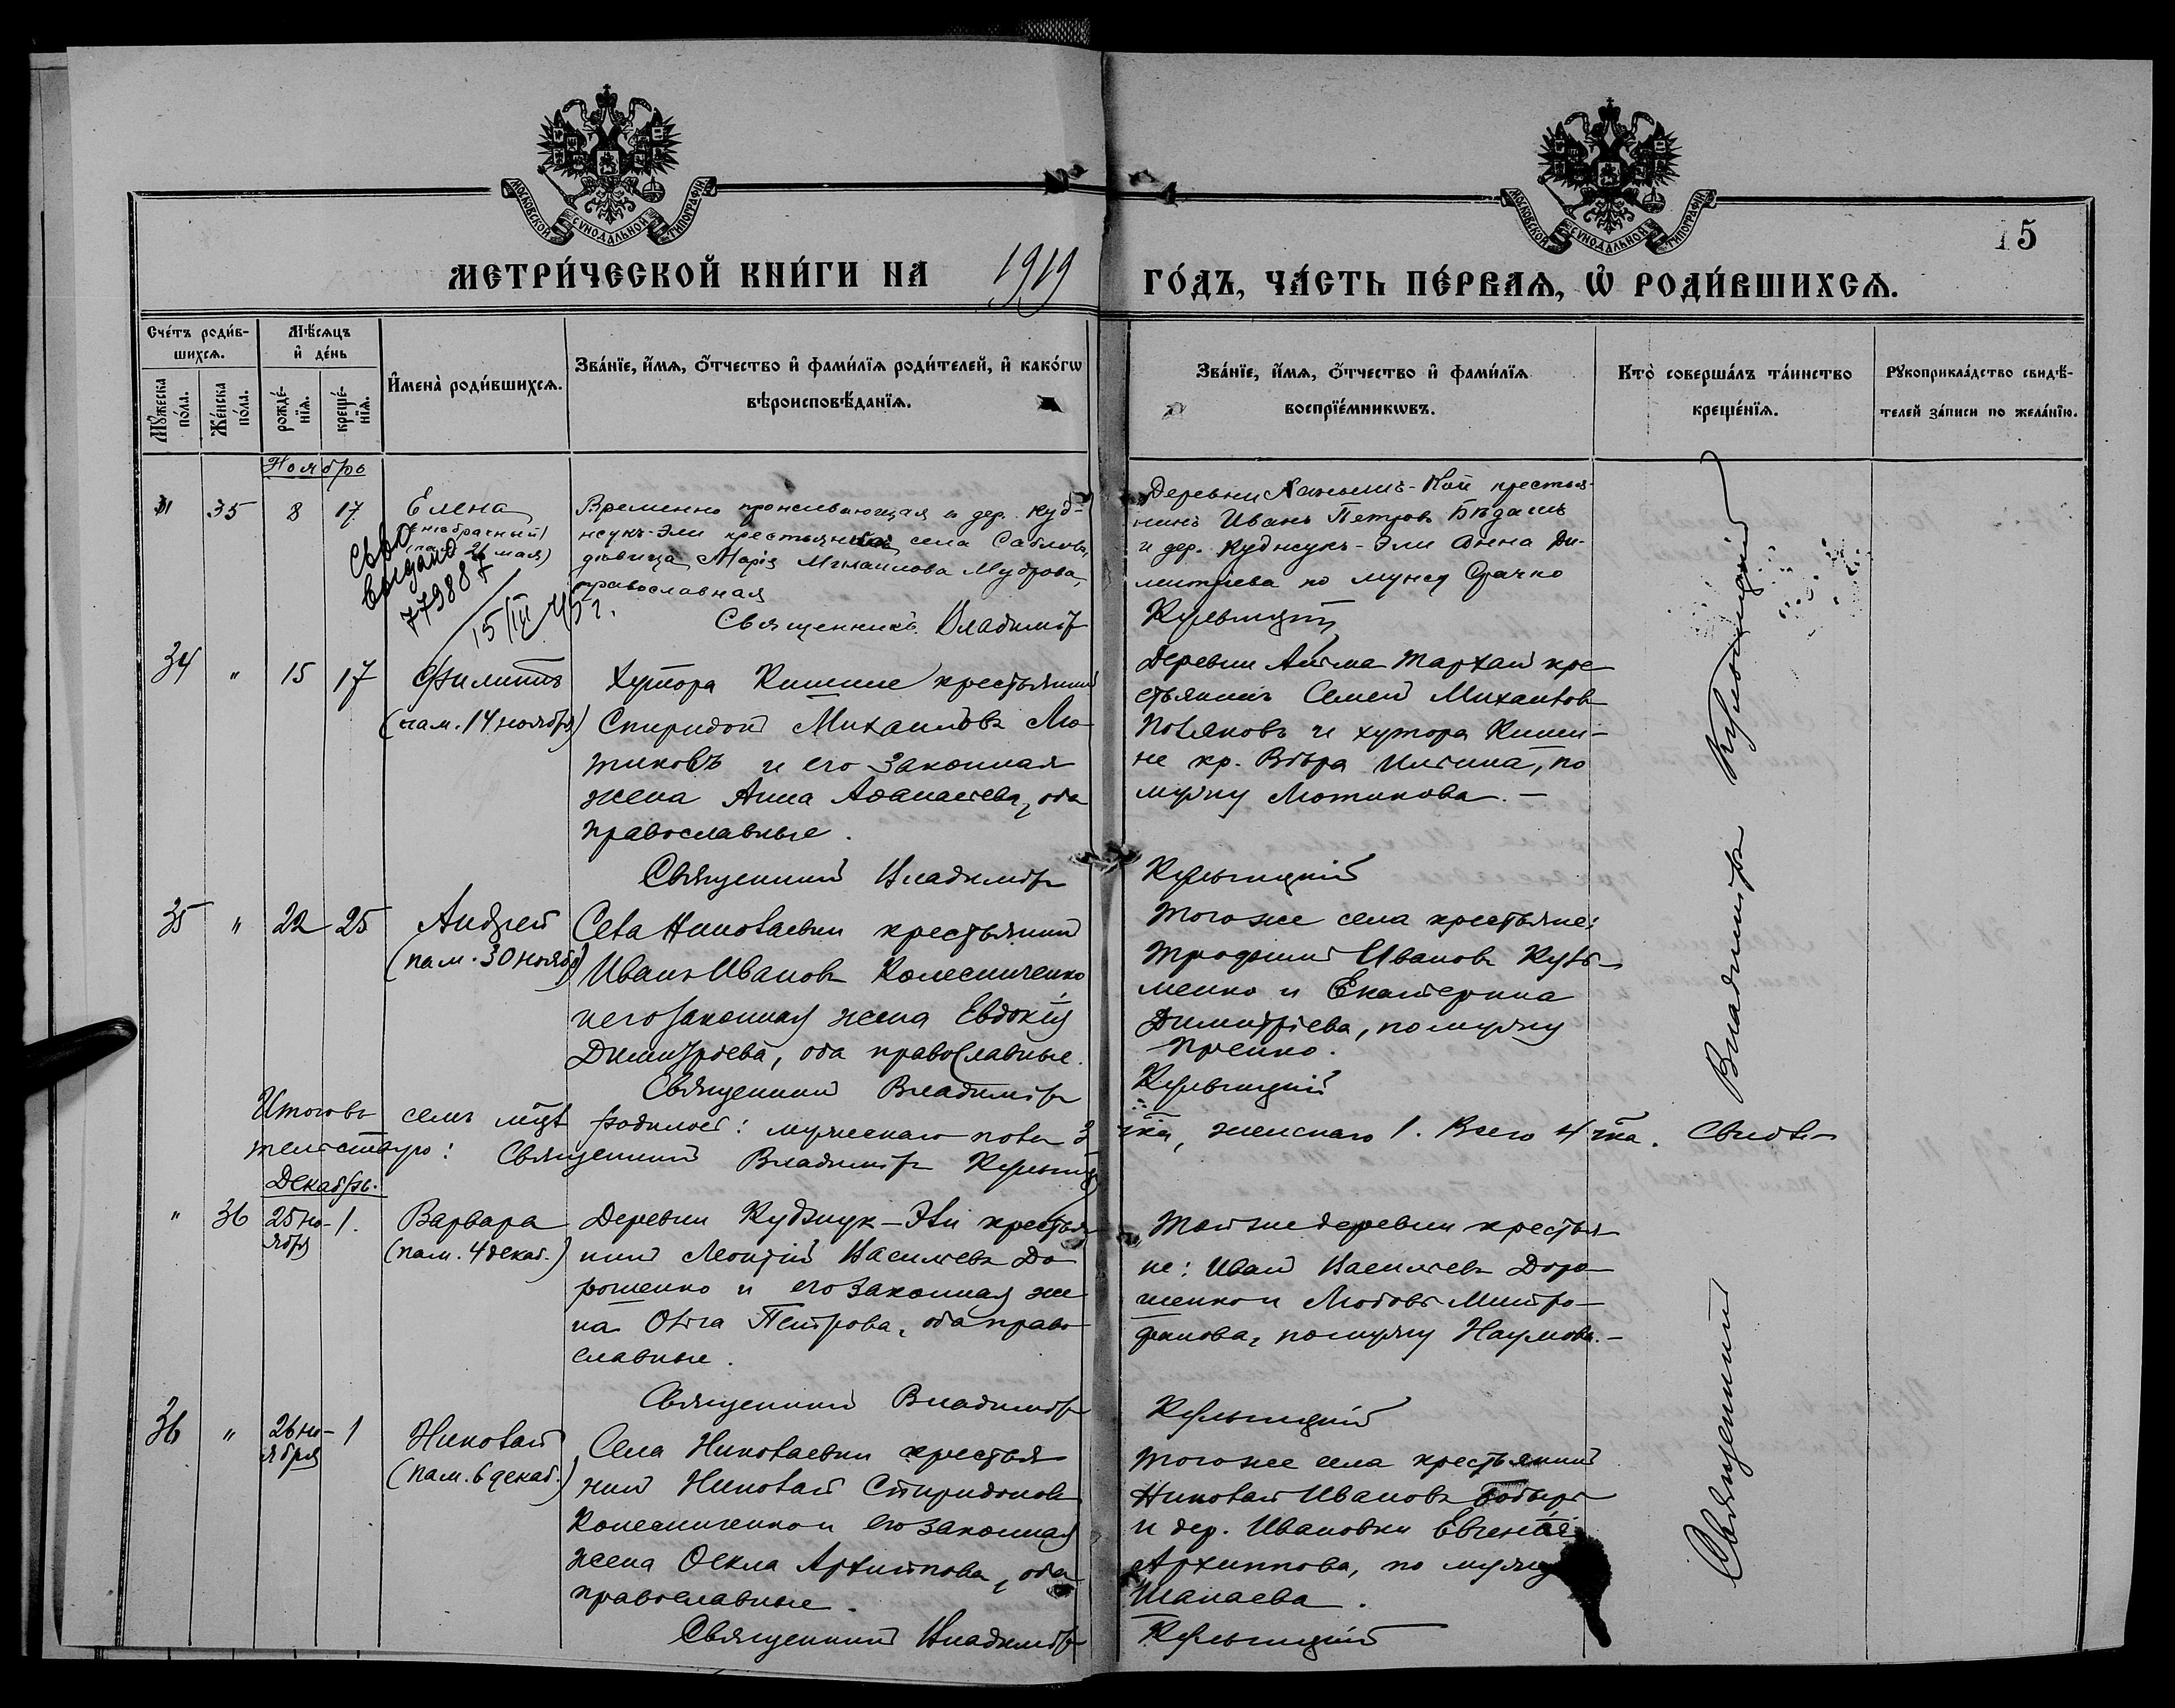 МОСКОВСКОЙ СѴНОДАЛЬНОЙ ТИПОГРАФІИ
МОСКОВСКОЙ СѴНОДАЛЬНОЙ ТИПОГРАФІИ
15
МЕТРИ́ЧЕСКОЙ КНИ́ГИ НА 1919 ГО́ДЪ, ЧА́СТЬ ПЕ́РВАѦ, Ѡ҆ РОДИ́ВШИХСѦ.
Сче́тъ роди́в-
шихсѧ.
Мꙋ́жеска по́ла.
Же́нска по́ла.
Мѣ́сѧцъ
и҆ де́нь
рожде́-
нїѧ.
креще́-
нїѧ.
И҆мена̀ роди́вшихсѧ.
Зва́нїе, и҆́мѧ, ѻ҆́тчество и҆ фами́лїѧ роди́телей, и҆ како́гѡ
вѣроисповѣ́данїѧ.
Зва́нїе, и҆́мѧ, ѻ҆́тчество и҆ фами́лїѧ
воспрїе́мникѡвъ.
Кто̀ соверша́лъ та́инство
креще́нїѧ.
Рꙋкоприкла́дство свидѣ́-
телей за́писи по жела́нїю.
Ноябрь
35 8 17 Елена
(внебрачный)
21 мая)
СвоО
выдано
15/III 45 г.
Временно проживающая в дер. Куд-
жукъ-Эли крестьянка села Сабловъ,
дѣвица Марія Михаилова Мудрова,
православная
Священникъ Владиміръ
Деревни -Кой крестья-
нинъ Иванъ Петровъ
и дер. Куджукъ-Эли Анна Ди-
митріева по мужу
Кульчицкій
34 " 15 17 Филиппъ
(пам. 14 ноября)
Хутора Кишине крестьянинъ
Спиридонъ Михаиловъ Мо-
тиковъ и его законная
жена Анна Аѳанасіева, оба
православные.
Священникъ Владиміръ
Деревни Тархан кре
стьянинъ Семенъ Михаиловъ
Поляковъ и хутора Киши-
не кр. Вѣра Ильина, по
мужу Мотикова. –
Кульчицкій
35 " 22 25 Андрей
(пам. 30 ноября)
Села Николаевки крестьянинъ
Иванъ Ивановъ Колесниченко
и его законная жена Евдокія
Димитріева, оба православные.
Священникъ Владиміръ
Того же села крестьяне:
Трофимъ Ивановъ Кузь-
менко и Екатерина
Димитріева, по мужу
Кульчицкій
Итого въ семъ родилось: мужескаго пола 3 , женскаго 1. Всего 4 . Свидѣ-
тельствую: Священникъ Владиміръ Кульчицкій
Декабрь.
" 36 25 но-
ября 1. Варвара
(пам. 4 декаб.)
Деревни Куджук-Эли крестья
нинъ Леонтій Василіевъ До
рошенко и его законная же
на Ольга Петрова, оба право-
славные.
Священникъ Владиміръ
Той же деревни крестья
не: Иванъ Василіевъ Доро
шенко и Любовь Митро-
фанова, по мужу Наумова. –
Кульчицкій
36 " 26 но-
ября 1 Николай
(пам. 6 декаб.)
Села Николаевки крестья
нинъ Николай Спиридоновъ
Колесниченко и его законная
жена Ѳекла Архиппова, оба
православные.
Священникъ Владиміръ
Того же села крестьянинъ
Николай Ивановъ Бобырь
и дер. Ивановки Евгенія
Архиппова, по мужу
Шапаева.
Кульчицкій
Священникъ Владиміръ Кульчицкій